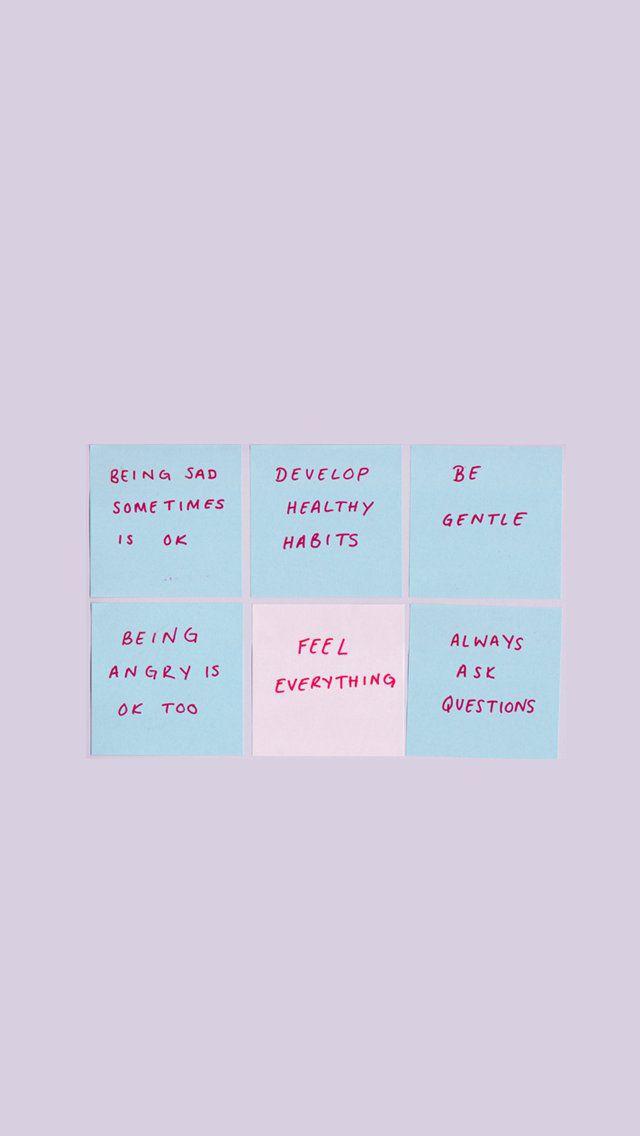 BEING SAD
SOMETIMES
IS OK
DEVELOP
HEALTHY
HABITS
BE
GENTLE
BEING
ANGRY IS
OK TOO
FEEL
EVERYTHING
ALWAYS
ASK
QUESTIONS